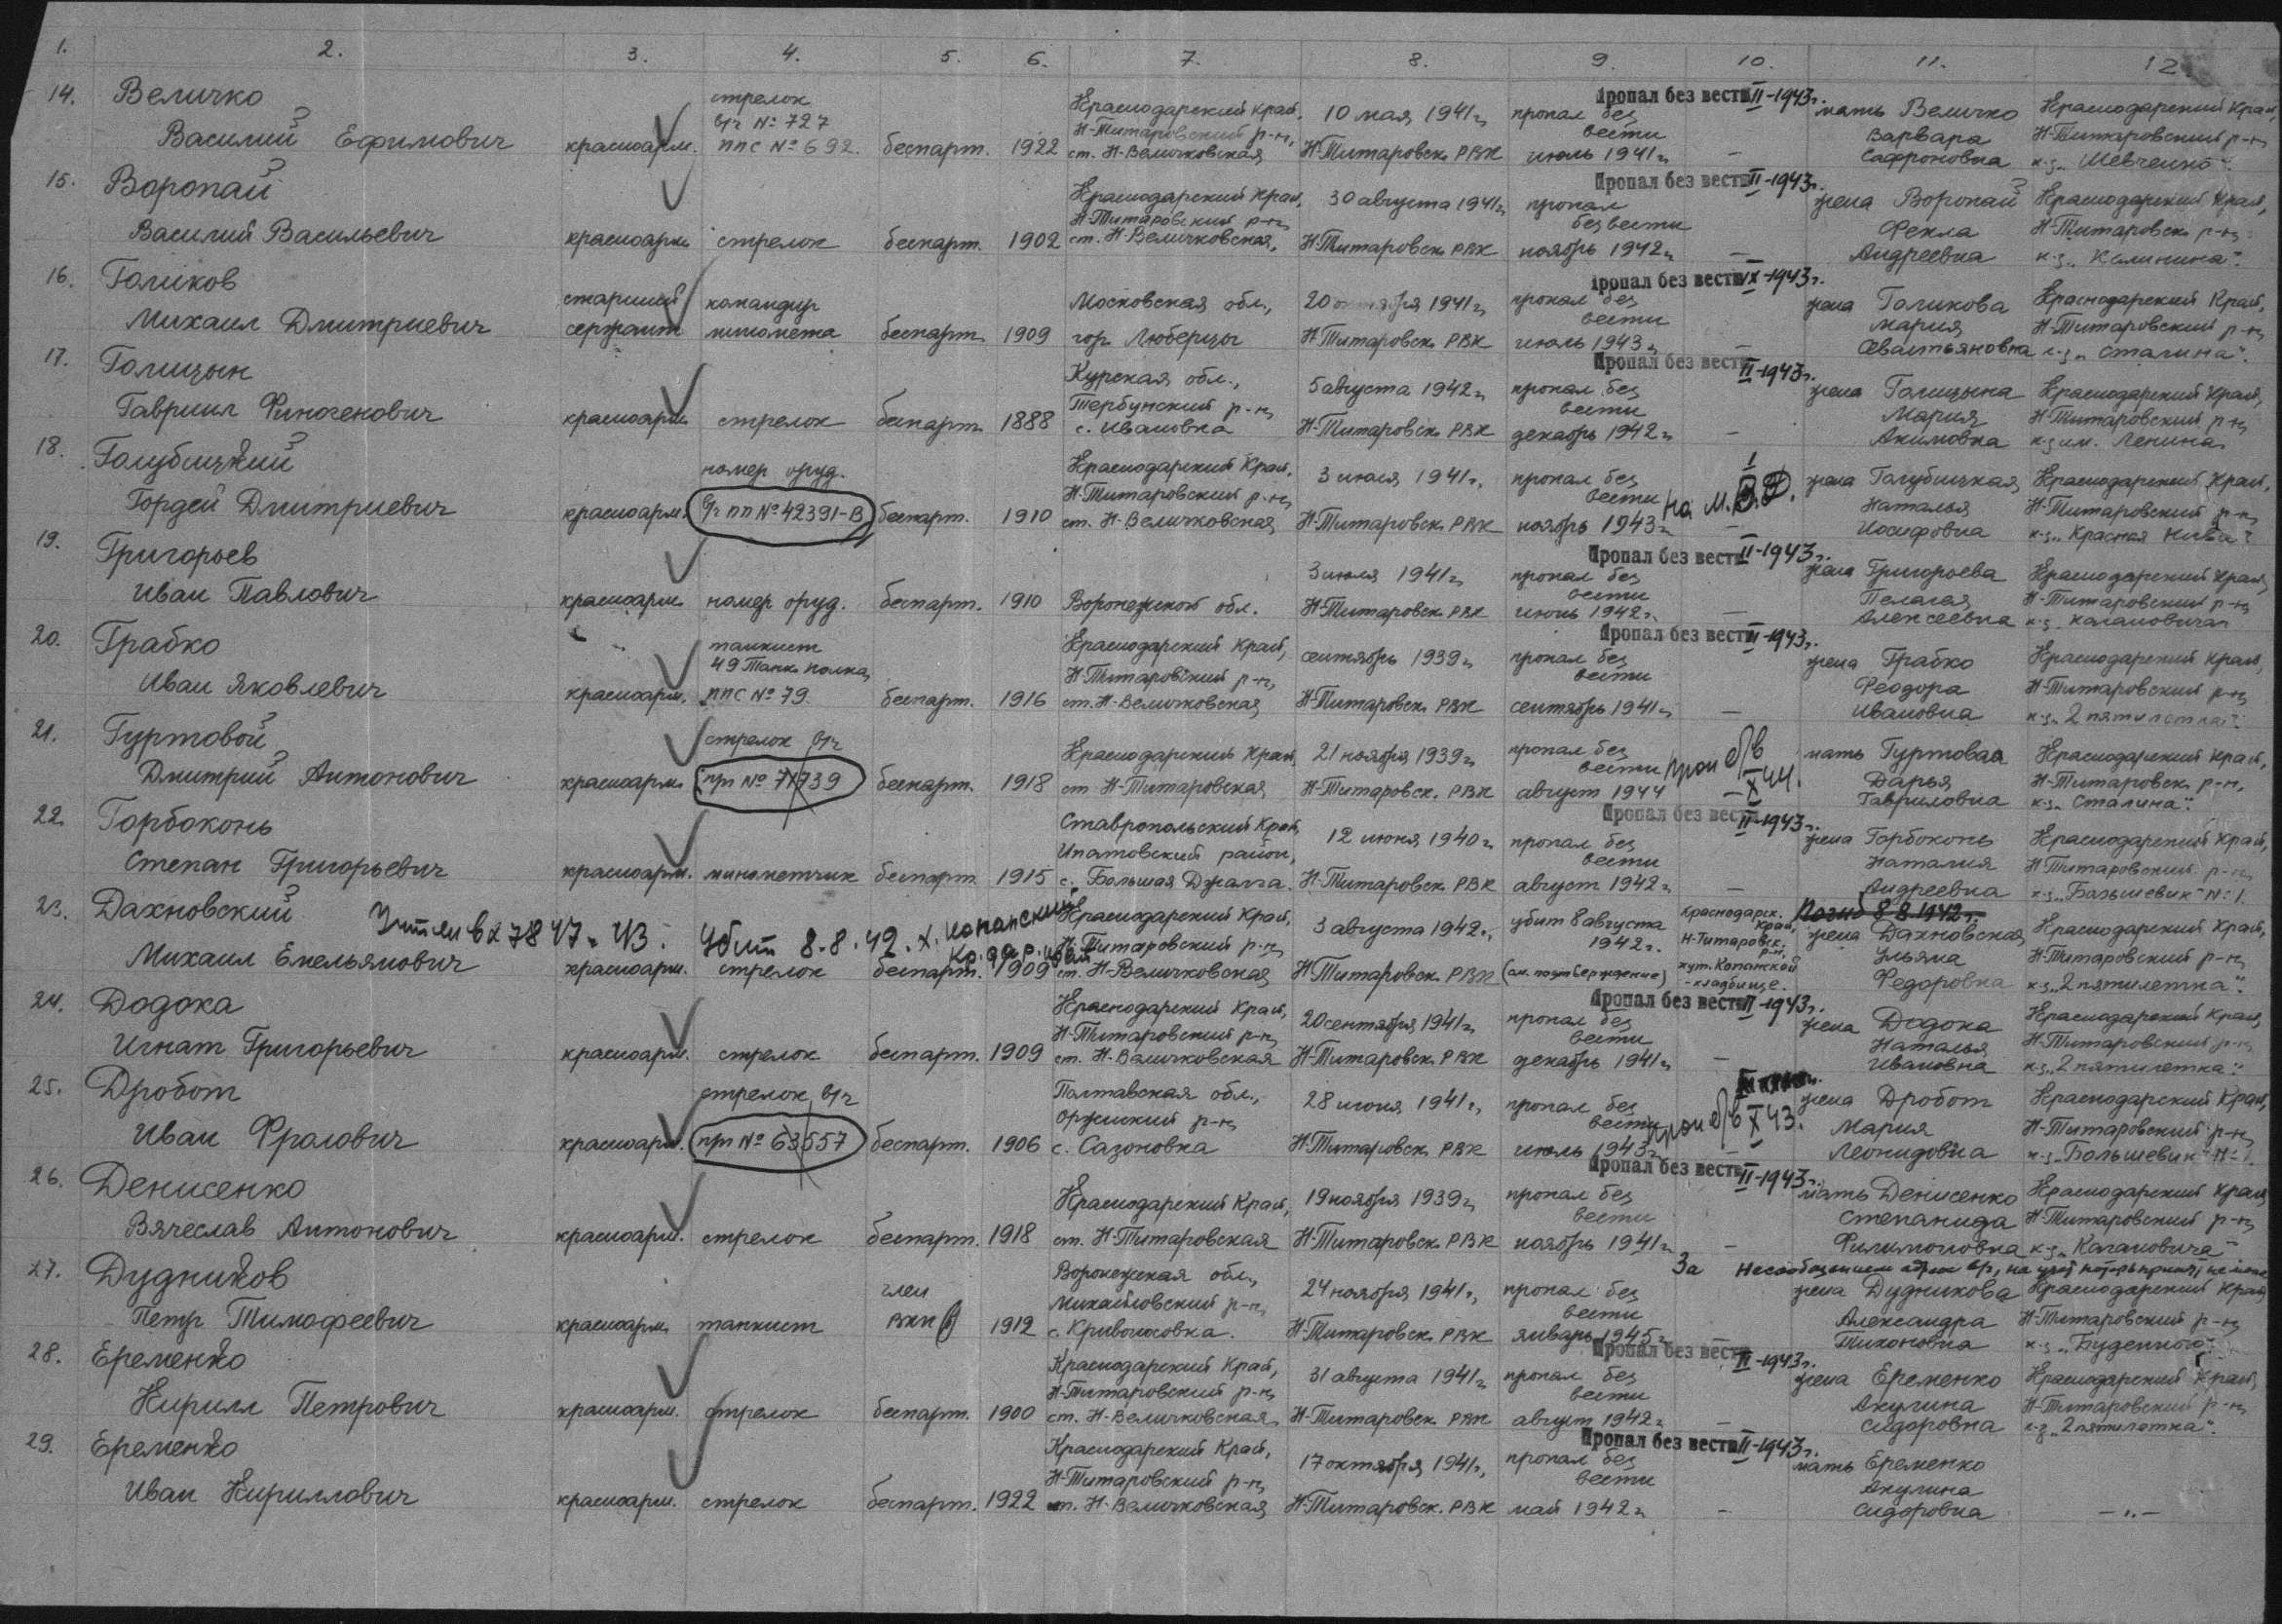 1. 2. 3. 4. 5. 6. 7. 8. 9. 10. 11. 12.
14. Величко
Василий Ефимович
красноарм.
стрелок
в/ч № 727
ППС № 692.
беспарт.
1922
Краснодарский край,
Н-Титаровский р-н,
ст. Н-Величковская
10 мая 1941г.
Н-Титаровск. РВК
пропал без
вести
июль 1941г.
–
Пропал без вести II-1943г.
мать Величко
Варвара
Сафроновна
Краснодарский край,
Н-Титаровский р-н
к-з „Шевченко“.
15. Воропай
Василий Васильевич
красноарм.
стрелок
беспарт.
1902
Краснодарский край,
Н-Титаровский р-н,
ст. Н-Величковская,
30 августа 1941г.
Н-Титаровск. РВК
пропал
без вести
ноябрь 1942г.
–
Пропал без вести II-1943г.
жена Воропай
Фекла
Андреевна
Краснодарский край,
Н-Титаровск. р-н,
к-з „Калинина“.
16. Голиков
Михаил Дмитриевич
старший
сержант
командир
миномета
беспарт.
1909
Московская обл.,
гор. Люберцы
20 октября 1941г.
Н-Титаровск. РВК
пропал без
вести
июль 1943г.
–
Пропал без вести IX-1943г.
жена Голикова
Мария
Севастьяновна
Краснодарский край,
Н-Титаровский р-н
к-з „Сталина“.
17. Голицын
Гавриил Финогенович
красноарм.
стрелок
беспарт.
1888
Курская обл.,
Тербунский р-н,
с. Ивановка
5 августа 1942г.
Н-Титаровск. РВК
пропал без
вести
декабрь 1942г.
–
Пропал без вести II-1943г.
жена Голицына
Мария
Акимовна
Краснодарский край,
Н-Титаровский р-н,
к-з им. Ленина.
18. Голубицкий
Гордей Дмитриевич
красноарм.
номер оруд.
в/ч пп № 42391-В
беспарт.
1910
Краснодарский край,
Н-Титаровский р-н,
ст. Н-Величковская
3 июля 1941г.,
Н-Титаровск. РВК
пропал без
вести
ноябрь 1943г.
–
жена Голубицкая
Наталья
Иосифовна
Краснодарский край,
Н-Титаровский р-н,
к-з „Красная Нива“.
19. Григорьев
Иван Павлович
красноарм.
номер оруд.
беспарт.
1910
Воронежской обл.
3 июля 1941г.
Н-Титаровск. РВК
пропал без
вести
июнь 1942г.
–
Пропал без вести II-1943г.
жена Григорьева
Пелагея
Алексеевна
Краснодарский край,
Н-Титаровский р-н
к-з „Кагановича“
20. Грабко
Иван Яковлевич
красноарм.
танкист
49 Танк. полка,
ППС № 79.
беспарт.
1916
Краснодарский край,
Н-Титаровский р-н,
ст. Н-Величковская
сентябрь 1939г.
Н-Титаровск. РВК
пропал без
вести
сентябрь 1941г.
–
Пропал без вести II-1943г.
жена Грабко
Феодора
Ивановна
Краснодарский край,
Н-Титаровский р-н
к-з „2 пятилетка“.
21. Гуртовой
Дмитрий Антонович
красноарм.
стрелок в/ч
пп № 71739
беспарт.
1918
Краснодарский край,
ст. Н-Титаровская
21 ноября 1939г.
Н-Титаровск. РВК
пропал без
вести
август 1944
–
проп б/в
X 44.
мать Гуртовая
Дарья
Гавриловна
Краснодарский край,
Н-Титаровск. р-н,
к-з „Сталина“.
22. Горбоконь
Степан Григорьевич
красноарм.
минометчик
беспарт.
1915
Ставропольский край,
Ипатовский район,
с. Большая Джалга.
12 июня 1940г.
Н-Титаровск. РВК
пропал без
вести
август 1942г.
–
Пропал без вести II-1943г.
жена Горбоконь
Наталия
Андреевна
Краснодарский край,
Н-Титаровский р-н
к-з „Большевик“ № 1.
23. Дахновский
Михаил Емельянович
Убит 8.8.42. х. Копанский
Кр.дар. край
красноарм.
стрелок
беспарт.
1909
Краснодарский край,
Н-Титаровский р-н
ст. Н-Величковская
3 августа 1942г.,
Н-Титаровск. РВК
убит 8 августа
1942г.
(см. подтверждение)
Краснодарск.
край,
Н-Титаровск.
р-н,
хут. Копанской
- кладбище.
Погиб 8.8.1942г.
жена Дахновская
Ульяна
Федоровна
Краснодарский край,
Н-Титаровский р-н,
к-з „2 пятилетка“.
24. Додока
Игнат Григорьевич
красноарм.
стрелок
беспарт.
1909
Краснодарский край,
Н-Титаровский р-н
ст. Н-Величковская
20 сентября 1941г.
Н-Титаровск. РВК
пропал без
вести
декабрь 1941г.
–
Пропал без вести II-1943г.
жена Додока
Наталья
Ивановна
Краснодарский край,
Н-Титаровский р-н,
к-з „2 пятилетка“.
25. Дробот
Иван Фролович
красноарм.
стрелок в/ч
пп № 63557
беспарт.
1906
Полтавская обл.,
Оржицкий р-н,
с. Сазоновка
28 июня 1941г.,
Н-Титаровск. РВК
пропал без
вести
июль 1943г.
–
проп б/в X 43.
жена Дробот
Мария
Леонидовна
Краснодарский край,
Н-Титаровский р-н,
к-з „Большевик“ № 1.
26. Денисенко
Вячеслав Антонович
красноарм.
стрелок
беспарт.
1918
Краснодарский край,
ст. Н-Титаровская
19 ноября 1939г.
Н-Титаровск. РВК
пропал без
вести
ноябрь 1941г.
–
Пропал без вести II-1943г.
мать Денисенко
Степанида
Филимоновна
Краснодарский край,
Н-Титаровский р-н,
к-з „Кагановича“
27. Дудников
Петр Тимофеевич
красноарм.
танкист
член
ВКП(б)
1912
Воронежская обл.,
Михайловский р-н,
с. Кривоносовка.
24 ноября 1941г.,
Н-Титаровск. РВК
пропал без
вести
январь 1945г.
–
За
жена Дудникова
Александра
Тихоновна
Краснодарский край
Н-Титаровский р-н,
к-з „Буденного“.
28. Еременко
Кирилл Петрович
красноарм.
стрелок
беспарт.
1900
Краснодарский край,
Н-Титаровский р-н,
ст. Н-Величковская,
31 августа 1941г.
Н-Титаровск. РВК
пропал без
вести
август 1942г.
–
Пропал без вести II-1943г.
жена Еременко
Акулина
Сидоровна
Краснодарский край,
Н-Титаровский р-н,
к-з „2 пятилетка“.
29. Еременко
Иван Кириллович
красноарм.
стрелок
беспарт.
1922
Краснодарский край,
Н-Титаровский р-н,
ст. Н-Величковская
17 октября 1941г.,
Н-Титаровск. РВК
пропал без
вести
май 1942г.
–
Пропал без вести II-1943г.
мать Еременко
Акулина
Сидоровна
– „ –